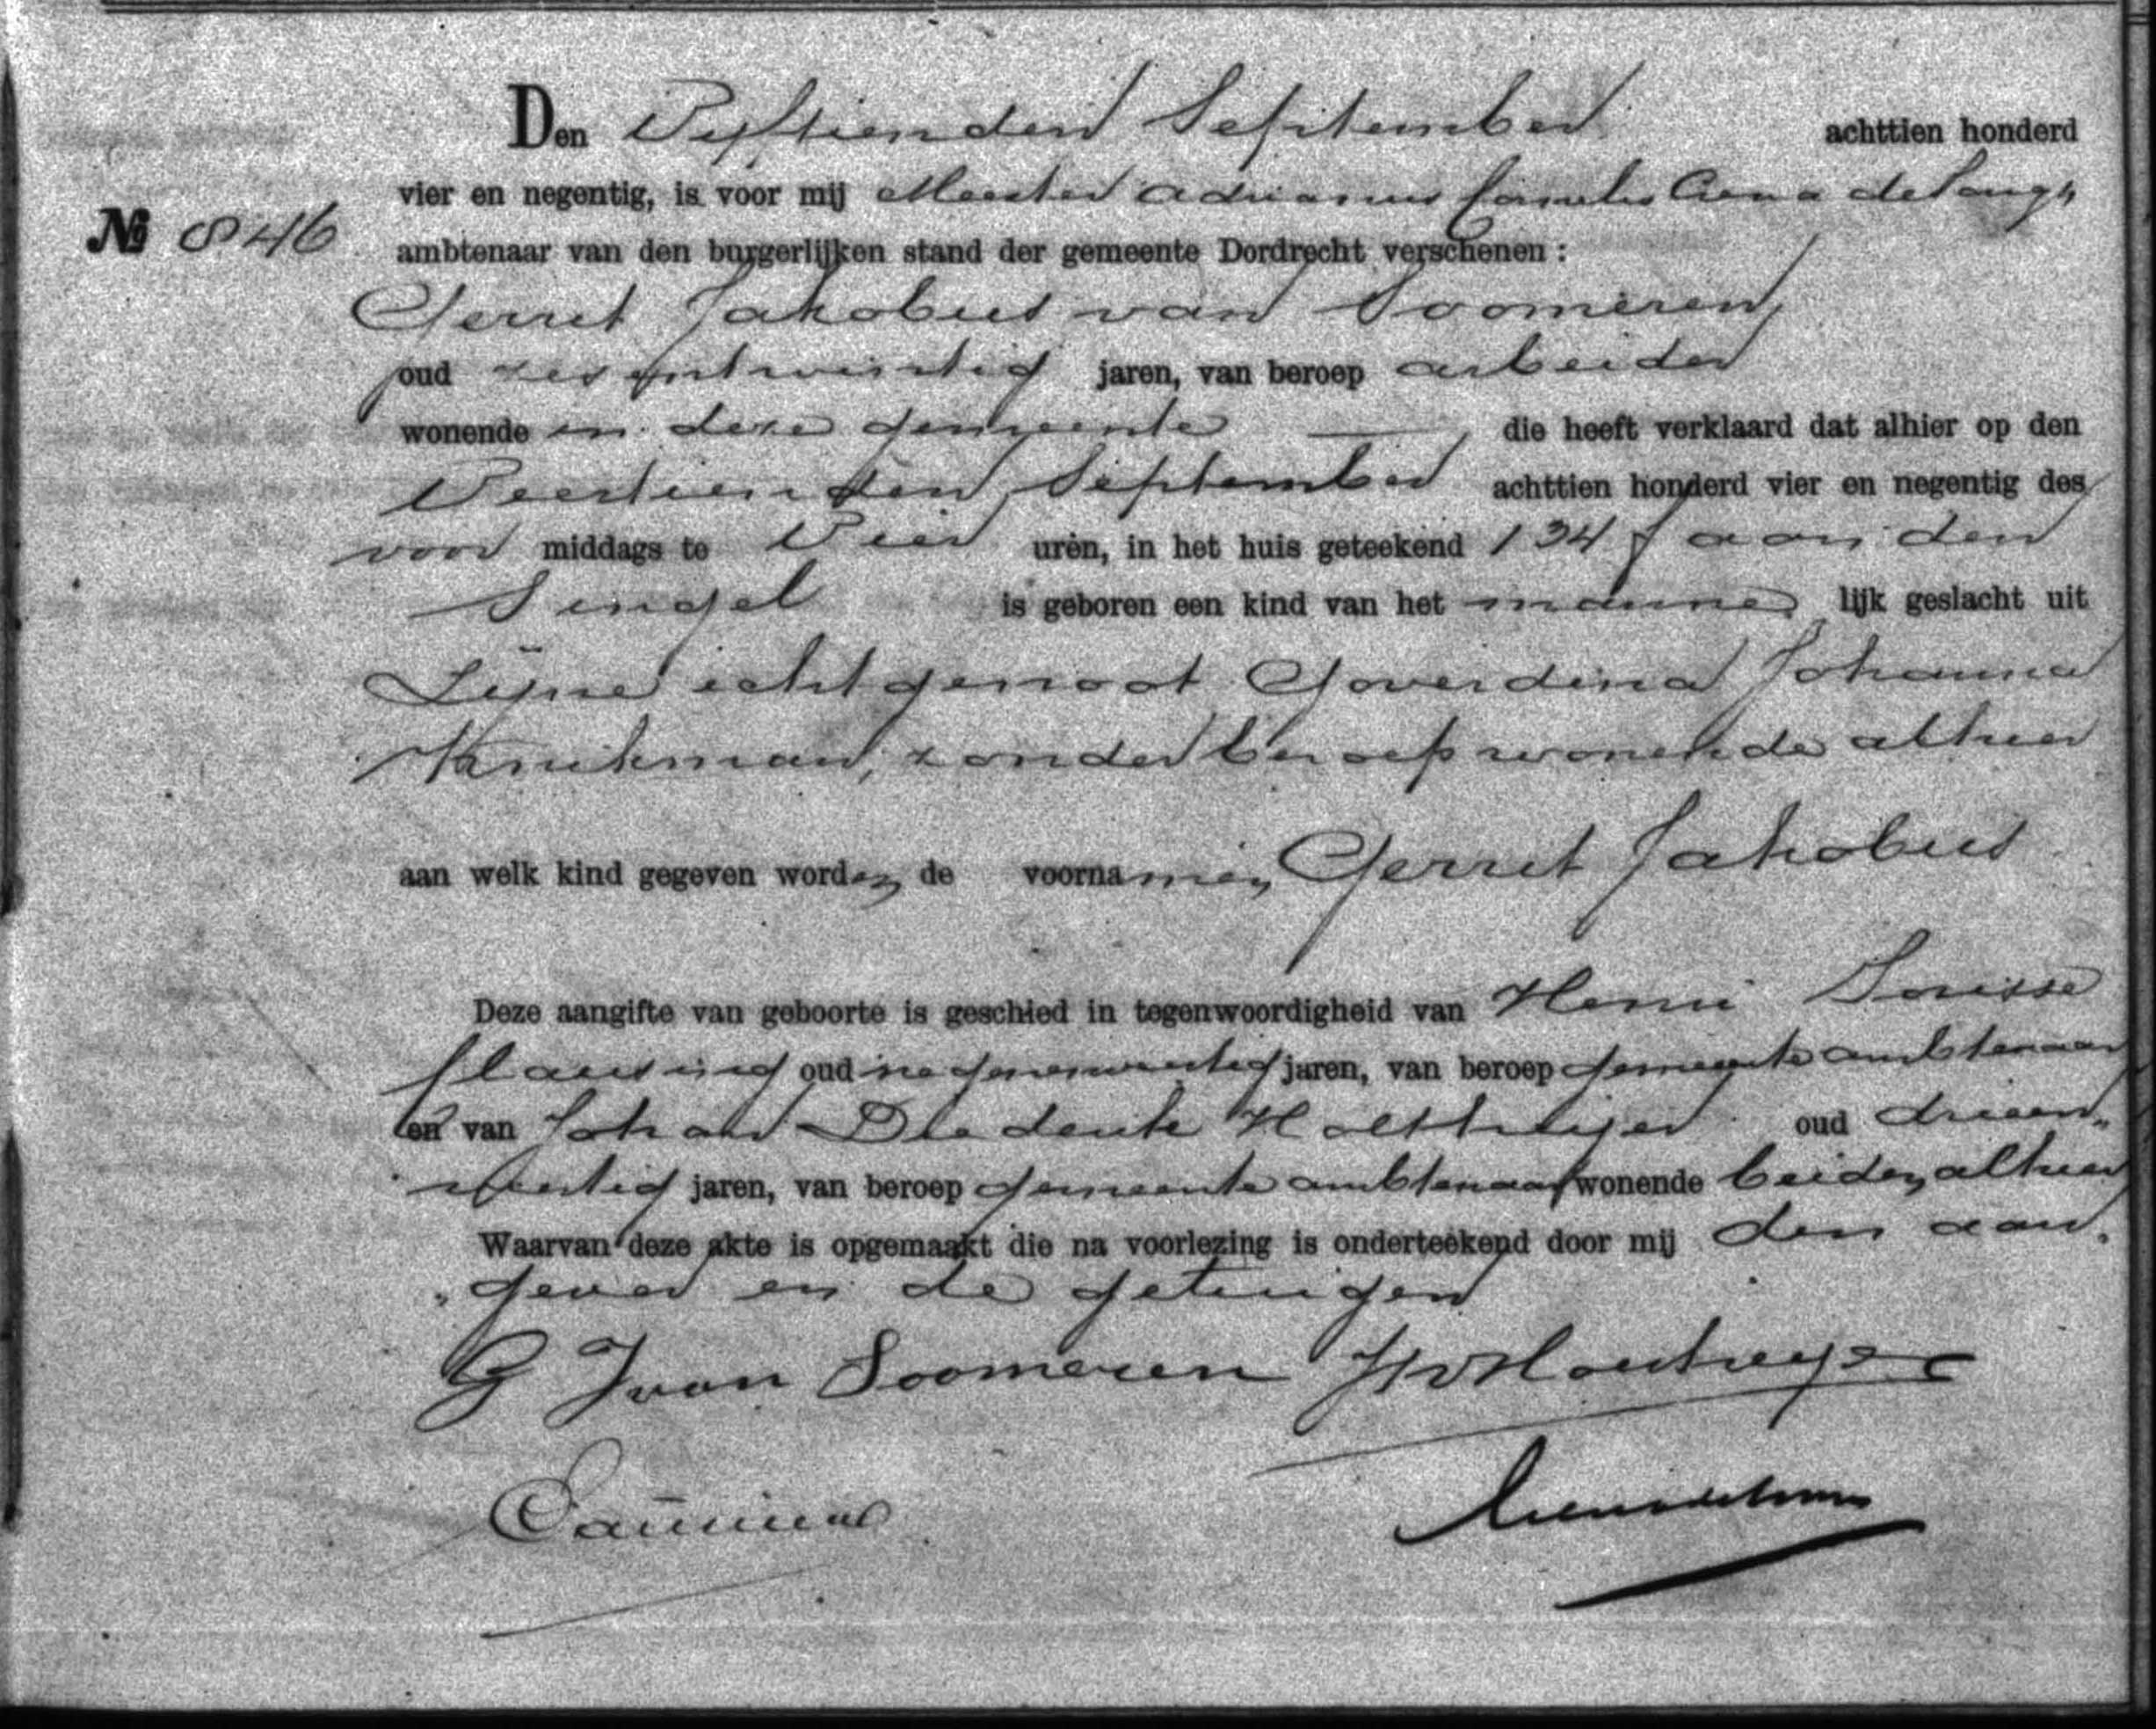 Den Vijftienden September achttien honderd
vier en negentig, is voor mij Meester Adrianus Cornelis Crena de Iongh,
№ 846
ambtenaar van den burgerlijken stand der gemeente Dordrecht verschenen :
Gerrit Jakobus van Soomeren,
oud zes en twintig jaren, van beroep arbeider
wonende in deze gemeente — die heeft verklaard dat alhier op den
Veertienden September achttien honderd vier en negentig des
voor middags te Vier uren, in het huis geteekend 134 f aan den
Singel is geboren een kind van het manne lijk geslacht uit
Zijne echtgenoot Goverdina Johanna
zonder beroep wonende alhier
aan welk kind gegeven worden de voornamen, Gerrit Jakobus
Deze aangifte van geboorte is geschied in tegenwoordigheid van Henri
oud jaren, van beroep gemeente ambtenaar
en van Johan Diederik oud drieen„
veertig jaren, van beroep gemeente ambtenaar wonende beiden alhier
Waarvan deze akte is opgemaakt die na voorlezing is onderteekend door mij den aan„
„gever en de getuigen
G J van Soomeren